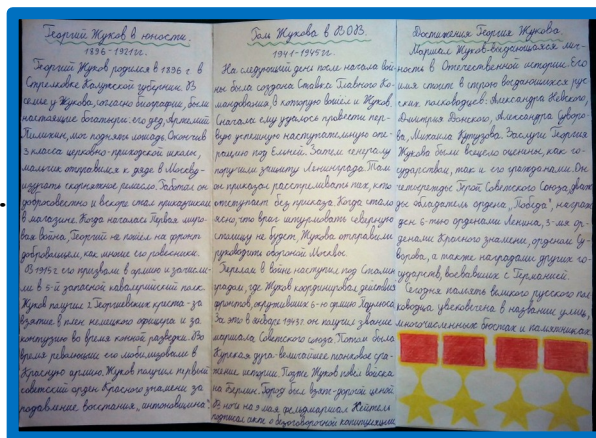 Георгий Жуков в юности.
1896-1921гг.
Георгий Жуков родился в 1896 г. в
Стрелковке Калужской губернии. В
семье у Жукова, согласно биографии, были
настоящие богатыри: его дед, Артемий
Пилихин, мог поднять лошадь. Окончив
3 класса церковно-приходской школы,
мальчик отправился к дяде в Москву-
изучать скорняжное ремесло. Работал он
добросовестно и вскоре стал приказчиком
в магазине. Когда началась Первая миро-
вая война, Георгий не пошёл на фронт
добровольцем, как многие его ровесники.
В 1915 г. его призвали в армию и зачисли-
ли в 5-й запасной кавалерийский полк.
Жуков получил 2 Георгиевских креста-за
взятие в плен немецкого офицера и за
контузию во время конной разведки. Во
время революции его мобилизовали в
Красную армию. Жуков получил первый
советский орден Красного знамени за
подавление восстания „антоновщина".
Роль Жукова в ВОВ.
1941-1945гг.
На следующий день после начала вой-
ны была создана Ставка Главного Ко-
мандования, в которую вошёл и Жуков.
Сначала ему удалось провести пер-
вую успешную наступательную опе-
рацию под Ельней. Затем генералу
поручили защиту Ленинграда. Там
он приказал расстреливать тех, кто
отступает без приказа. Когда стало
ясно, что враг штурмовать северную
столицу не будет, Жукова отправили
руководить обороной Москвы.
Перелом в войне наступил под Сталин-
градом, где Жуков координировал действия
фронтов, окруживших 6-ю армию Паулюса.
За это в январе 1943г. он получил звание
маршала Советского союза. Потом была
Курская дуга-величайшее танковое сра-
жение истории. Позже Жуков повёл войска
на Берлин. Город был взят-дорогой ценой.
В ночь на 9 мая фельдмаршал Кейтель
подписал акт о безоговорочной капитуляции.
Достижения Георгия Жукова.
Маршал Жуков-выдающаяся лич-
ность в Отечественной истории. Его
имя стоит в строю выдающихся рус-
ских полководцев: Александра Невского,
Дмитрия Донского, Александра Суворо-
ва, Михаила Кутузова. Заслуги Георгия
Жукова были всецело оценены, как го-
сударством, так и его гражданами. Он
четырежды Герой Советского Союза, дваж-
ды обладатель ордена „Победа", награж-
ден 6-тью орденами Ленина, 3-мя ор-
денами Красного знамени, орденом Су-
ворова, а также наградами других го-
сударств, воевавших с Германией.
Сегодня память великого русского пол-
ководца увековечена в названии улиц,
многочисленных бюстах и памятниках.